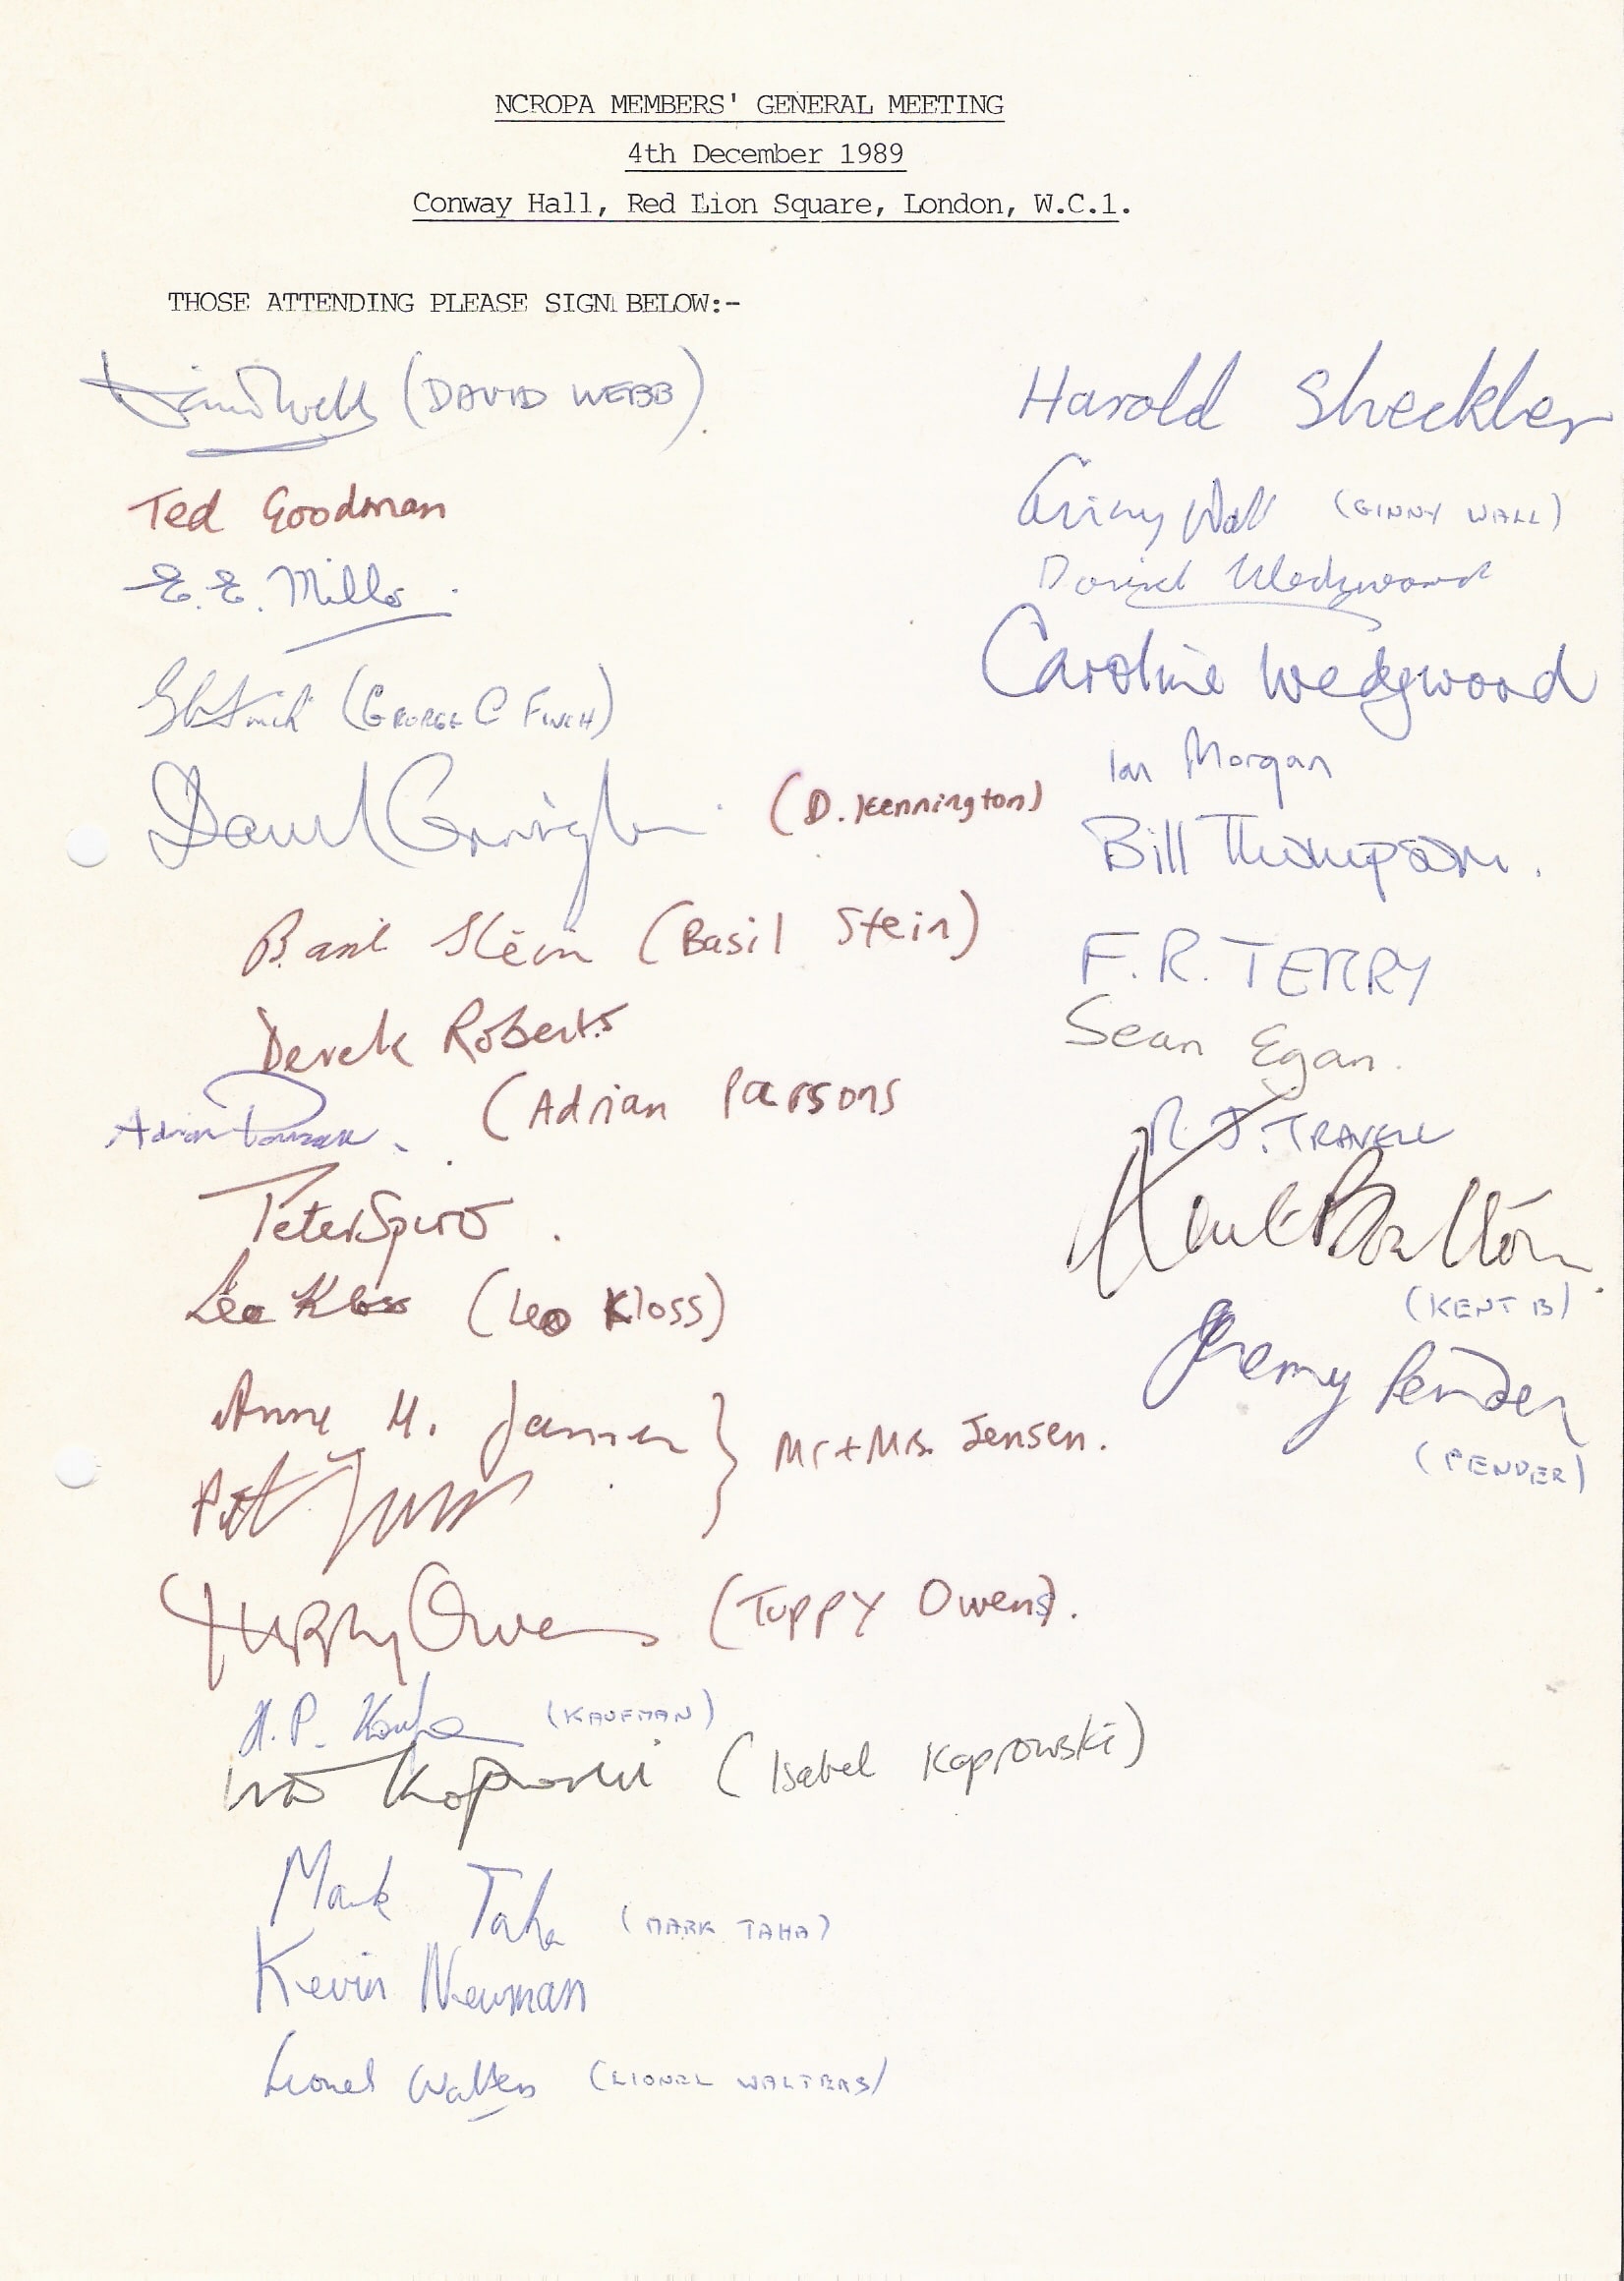 NCROPA MEMBERS' GENERAL MEETING
4th December 1989
Conway Hall, Red Lion Square, London, W.C.1.
THOSE ATTENDING PLEASE SIGN BELOW:-
David Webb (DAVID WEBB).
Ted Goodman
E.E. Mills.
(GEORGE C FINCH)
(D. Kennington)
Basil Stein (Basil Stein)
Derek Roberts
Adrian Parsons. (Adrian Parsons
Peter Spiro.
Leo Kloss (Leo Kloss)
Anne M. Jensen } Mr + Mrs. Jensen.
Tuppy Owens (Tuppy Owens).
H.P. Kaufman (KAUFMAN)
Kaprowski (Isabel Kaprowski)
Mark Taha (MARK TAHA)
Kevin Newman
Lionel Walters (LIONEL WALTERS)
Harold Sheckler
Ginny Wall (GINNY WALL)
David Wedgwood
Caroline Wedgwood
Ian Morgan
Bill Thompson.
F.R. TERRY
Sean Egan.
R.J. TRAVELL
Kent Boulton.
(KENT B)
Jeremy Pender
(PENDER)